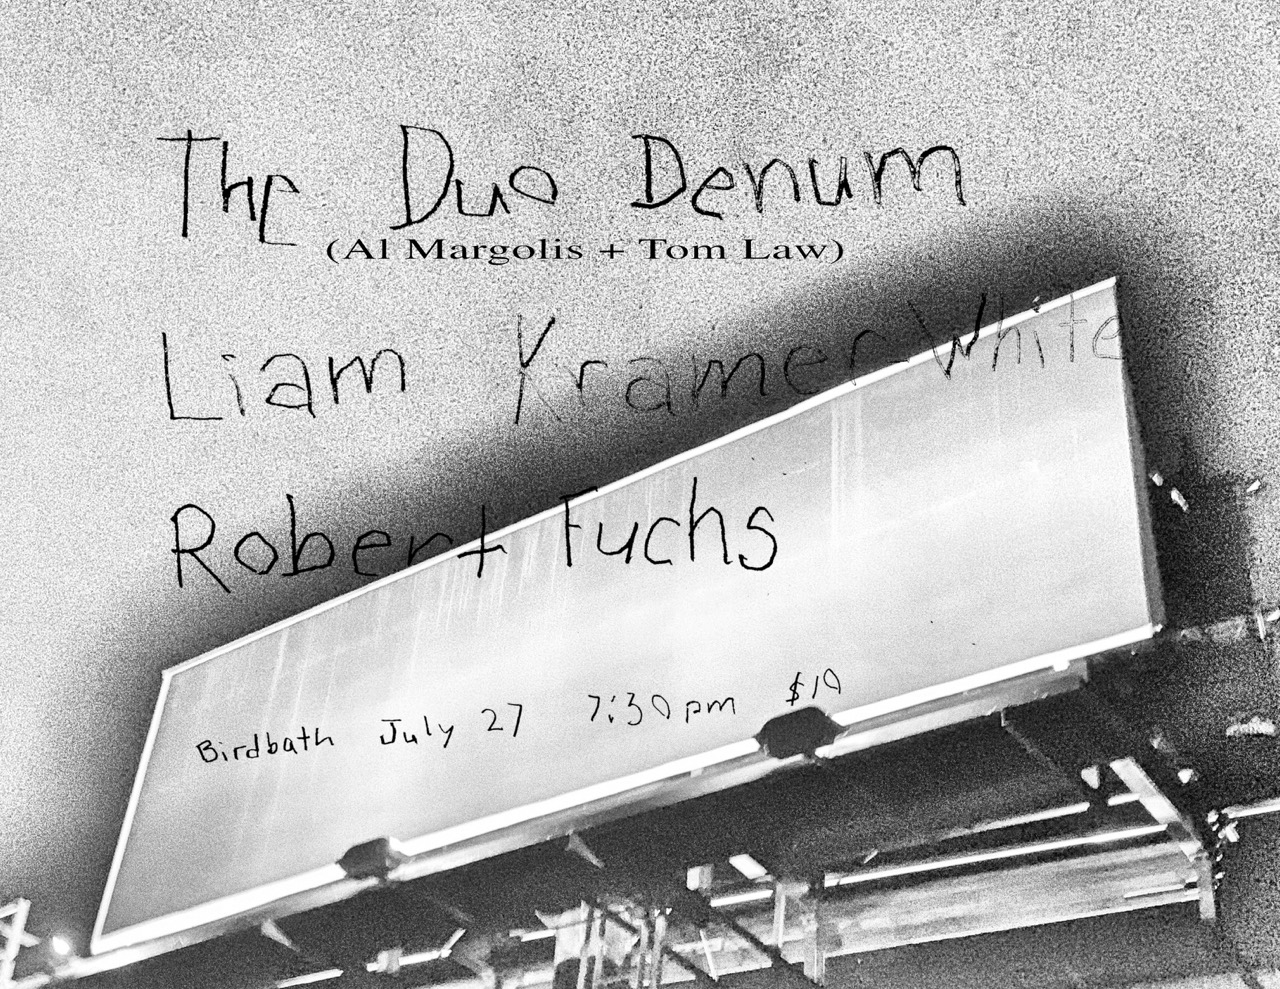 The Duo Denum
(Al Margolis + Tom Law)
Liam Kramer White
Robert Fuchs
Birdbath July 27 7:30pm $10